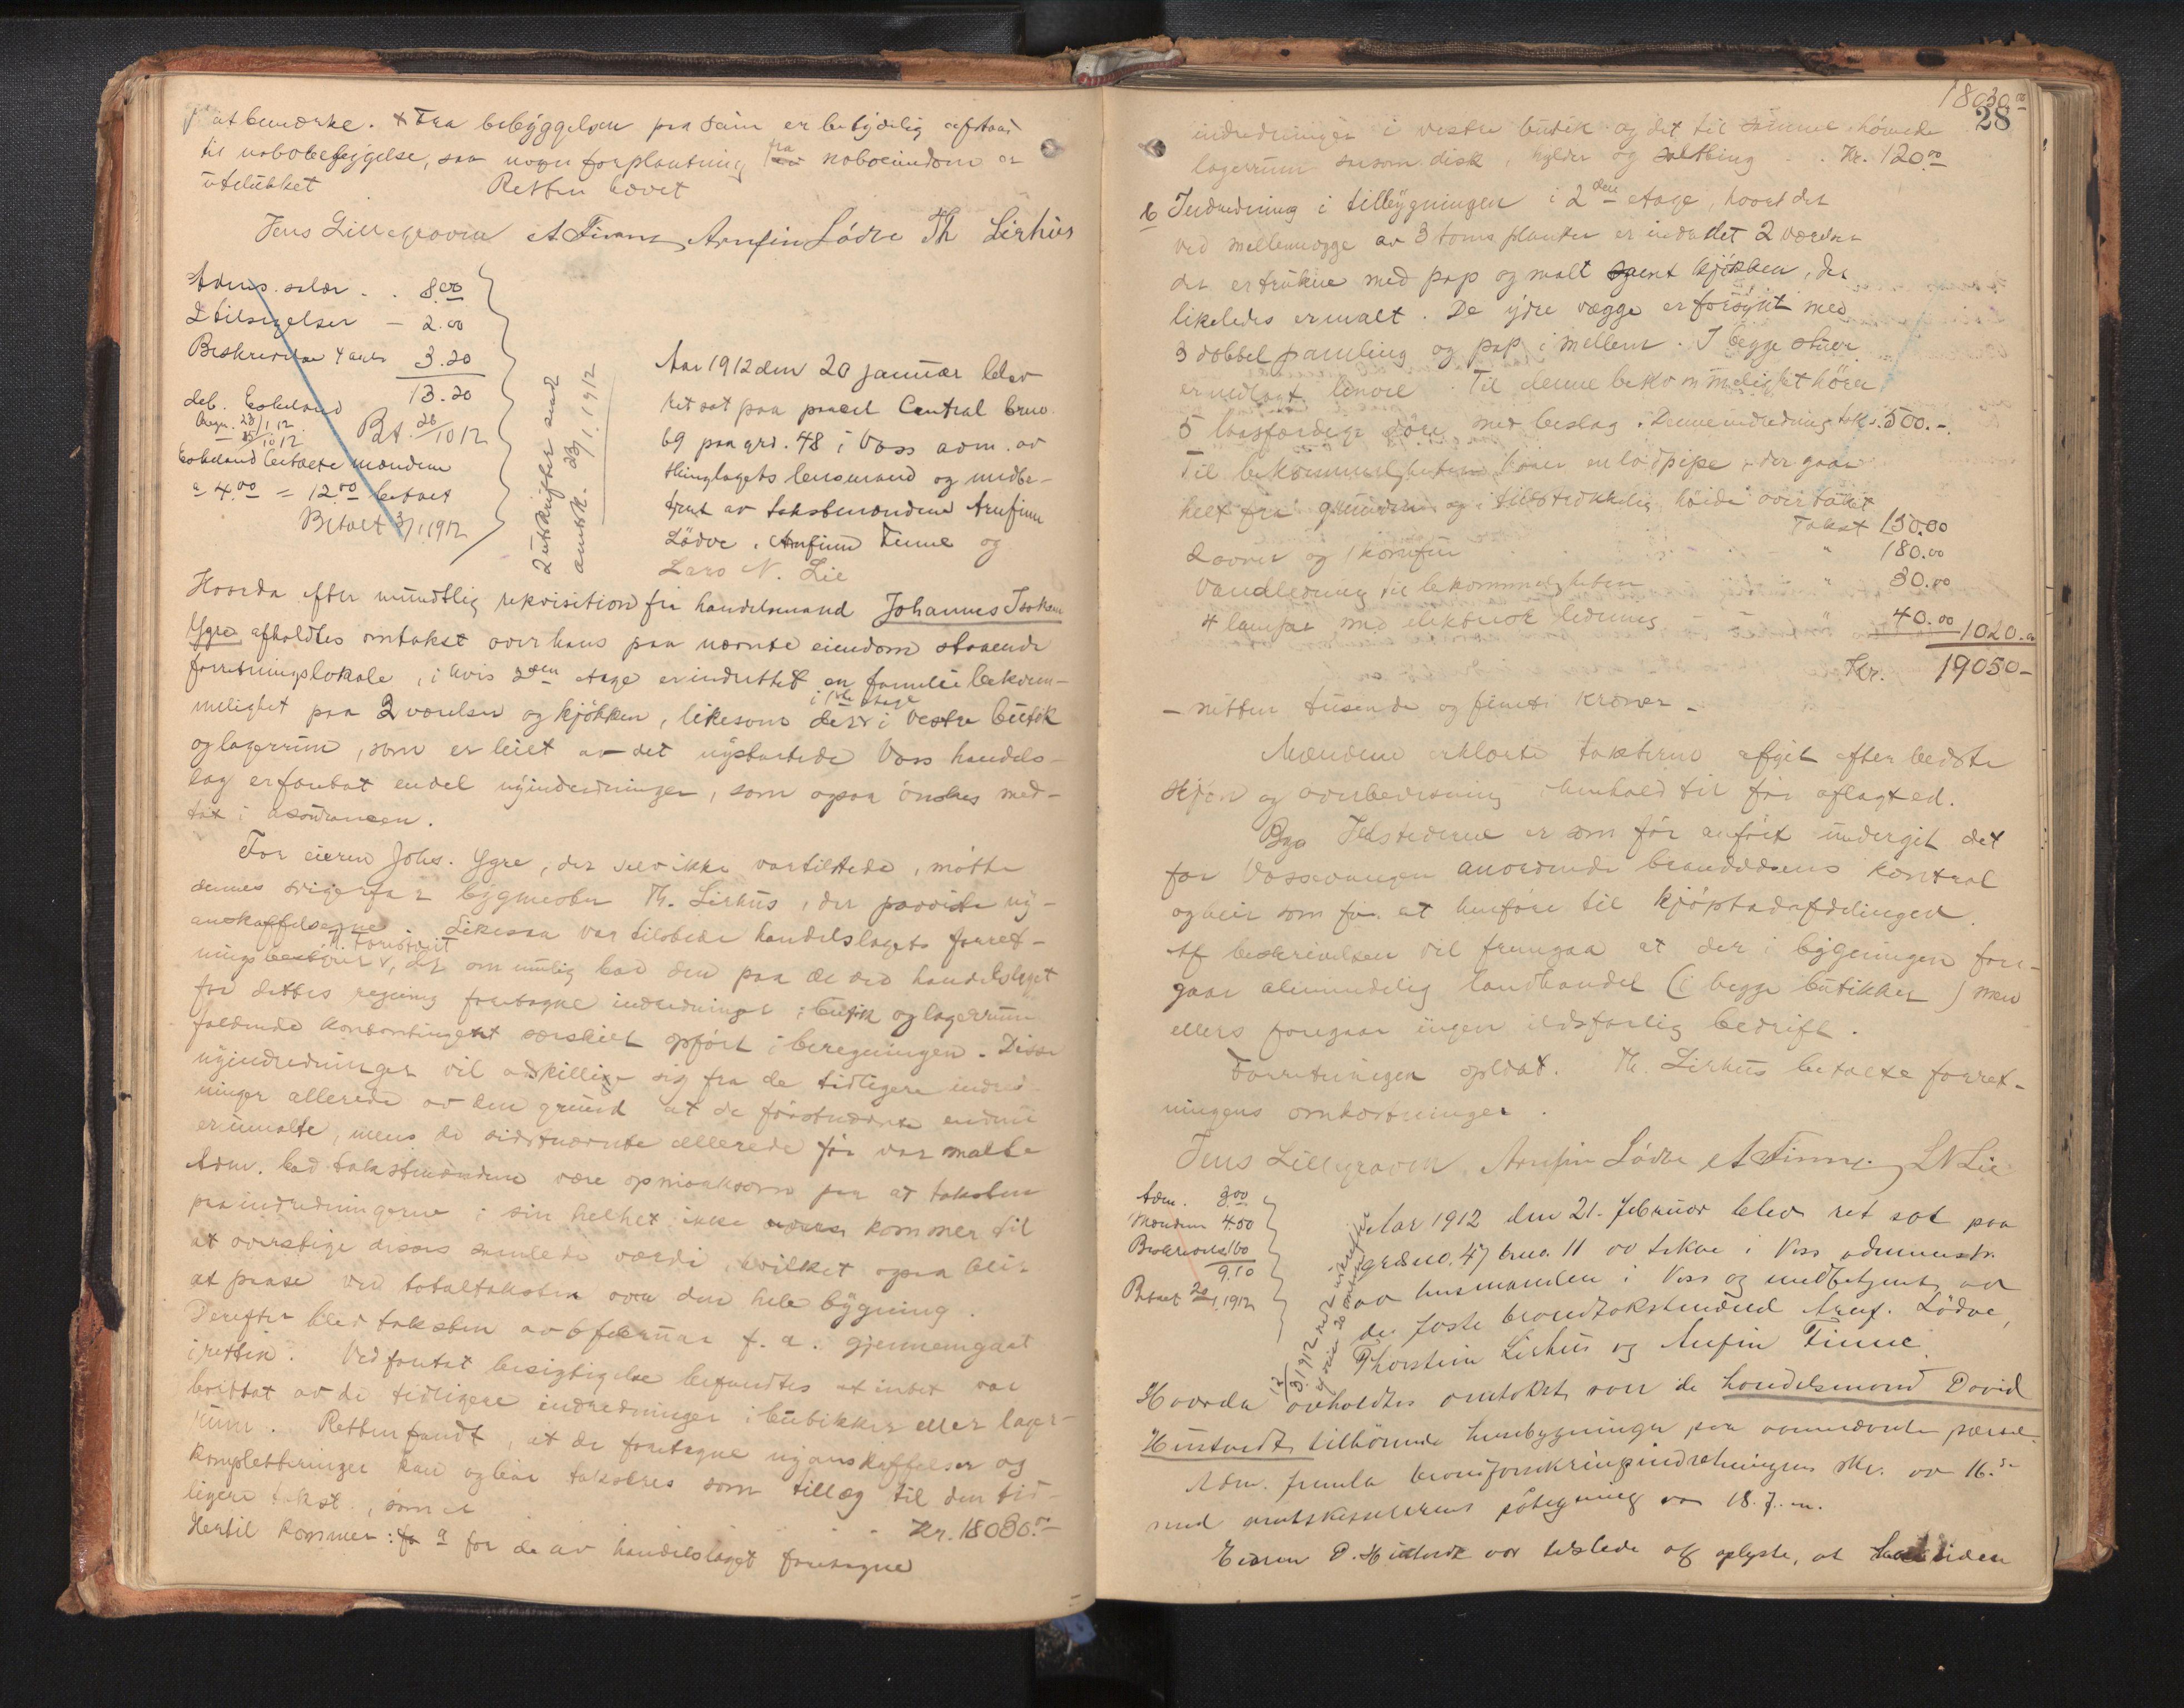 at bemærke. Fra bebyggelsen paa Saim er betydelig afstand
til nabobebyggelse, saa nogen forplantning fra naboeiendom er
utelukket Retten hævet
Jens Lillegraven A Finne Arnfin Lødve Th Lirhus
Adms. salær . . 8.00
2 tilsigelser — 2.00
Beskrivelse 4 ark 3.20
13.20
deb. Eskeland
Bet. 26/10 12
Eskeland betalte mændene
a 4.00 = 12.00 betalt
Betalt 3/1 1912
2 utskrifter sendt
amtsk. 23/1. 1912
Aar 1912 den 20 januar blev
ret sat paa parcel Central brno.
69 paa grd. 48 i Voss adm. av
thinglagets lensmand og medbe-
tjent av takstmændene Arnfinn
Lødve, Arnfinn Finne og
Lars N. Lie
Hvorda efter mundtlig rekvisition fra handelsmand Johannes Isaksen
Ygre afholdtes omtakst over hans paa nævnte eiendom staaende
forretningslokale, i hvis 2den etage er indrettet en familiebekvem-
melighet paa 2 værelser og kjøkken, likesom der i 1ste etage i vestre butik
og lagerrum, som er leiet av det nystartede Voss handels-
lag er foretat endel nyindredninger, som ogsaa ønskes med-
tat i assurancen.
For eieren Johs. Ygre, der selv ikke var tilstede, møtte
dennes svigerfar bygmester Th. Lirhus, der paaviste ny-
anskaffelserne. Likesaa var tilstede handelslagets forret-
ningsbestyrer, der om mulig bad den paa de av handelslaget
for dettes regning foretagne indredninger i butik og lagerrum
faldende kontingent særskilt opført i beregningen. Disse
nyindredninger vil adskille sig fra de tidligere indred-
ninger allerede av den grund at de førstnævnte endnu
er umalte, mens de sidstnævnte allerede før var malte
Adm. bad takstmændene være opmerksom paa at taksten
paa indredningerne i sin helhet ikke kommer til
at overstige disses samlede værdi, hvilket ogsaa blir
at passe ved totaltaksten over den hele bygning.
Derefter blev taksten av 6 februar f. a. gjennemgaat
i retten. Ved foretat besigtigelse befandtes at intet var
borttat av de tidligere indredninger i butikker eller lager-
rum. Retten fandt, at de foretagne nyanskaffelser og
kompletteringer kan og bør takseres som tillæg til den tid-
ligere takst, som er . Kr. 18030.00
Hertil kommer: a for de av handelslaget foretagne
18030.00
28
indredninger i vestre butik og det til samme hørende
lagerrum saasom disk, hylder og . . Kr. 120.00
b Indredning i tilbygningen i 2den etage, hvor det
ved mellemvægge av 3 toms planker er indredet 2 værelser
der er trukne med pap og malt samt kjøkken, der
likeledes er malt. De ydre vægge er forsynt med
3 dobbel paneling og pap i mellem. I begge stuer
er nedlagt linole. Til denne bekvemmelighet hører
5 laasfærdige døre med beslag. Denne indredning tak. 500.-
Til bekvemmeligheten hører en lodpipe, der gaar
helt fra grunden og i tilstrækkelig høide over taket
Takst 150.00
2 ovner og 1 komfur " 180.00
Vandledning til bekvemmeligheten " 30.00
4 lamper med elektrisk ledning " 40.00 1020.-
Kr. 19050-
- nitten tusende og femti kroner -
Mændene erklærte taksterne afgit efter bedste
skjøn og overbevisning i henhold til før aflagt ed.
Ildstederne er som før anført undergit det
for Vossevangen anordnede brandvæsens kontrol
og blir som før at henføre til kjøpstadafdelingen.
Af beskrivelsen vil fremgaa at der i bygningen fore-
gaar almindelig landhandel (i begge butikker) men
ellers foregaar ingen ildsfarlig bedrift.
Forretningen oplæst. Th. Lirhus betalte forret-
ningens omkostninger.
Jens Lillegraven, Arnfin Lødve A Finne, LN Lie
Adm. 3.00
Mændene 4.50
Beskrivelse 1.60
9.10
Betalt 20/1 1912
Aar 1912 den 21. februar blev ret sat paa
gardno. 47 brno. 11 av i Voss administr.
av lensmanden i Voss og medbetjent av
de faste brandtakstmænd Arnf. Lødve,
Thorstein Lirhus og Anfin Finne.
Hvorda avholdtes omtakst over de handelsmand David
Hustvedt tilhørende husebygninger paa ovennævnte parsel.
Adm. fremla brandforsikringsindretningens skr. av 16.
med amtskassererens paategning av 18. f. m.
Eieren D. Hustvedt var tilstede og oplyste, at siden